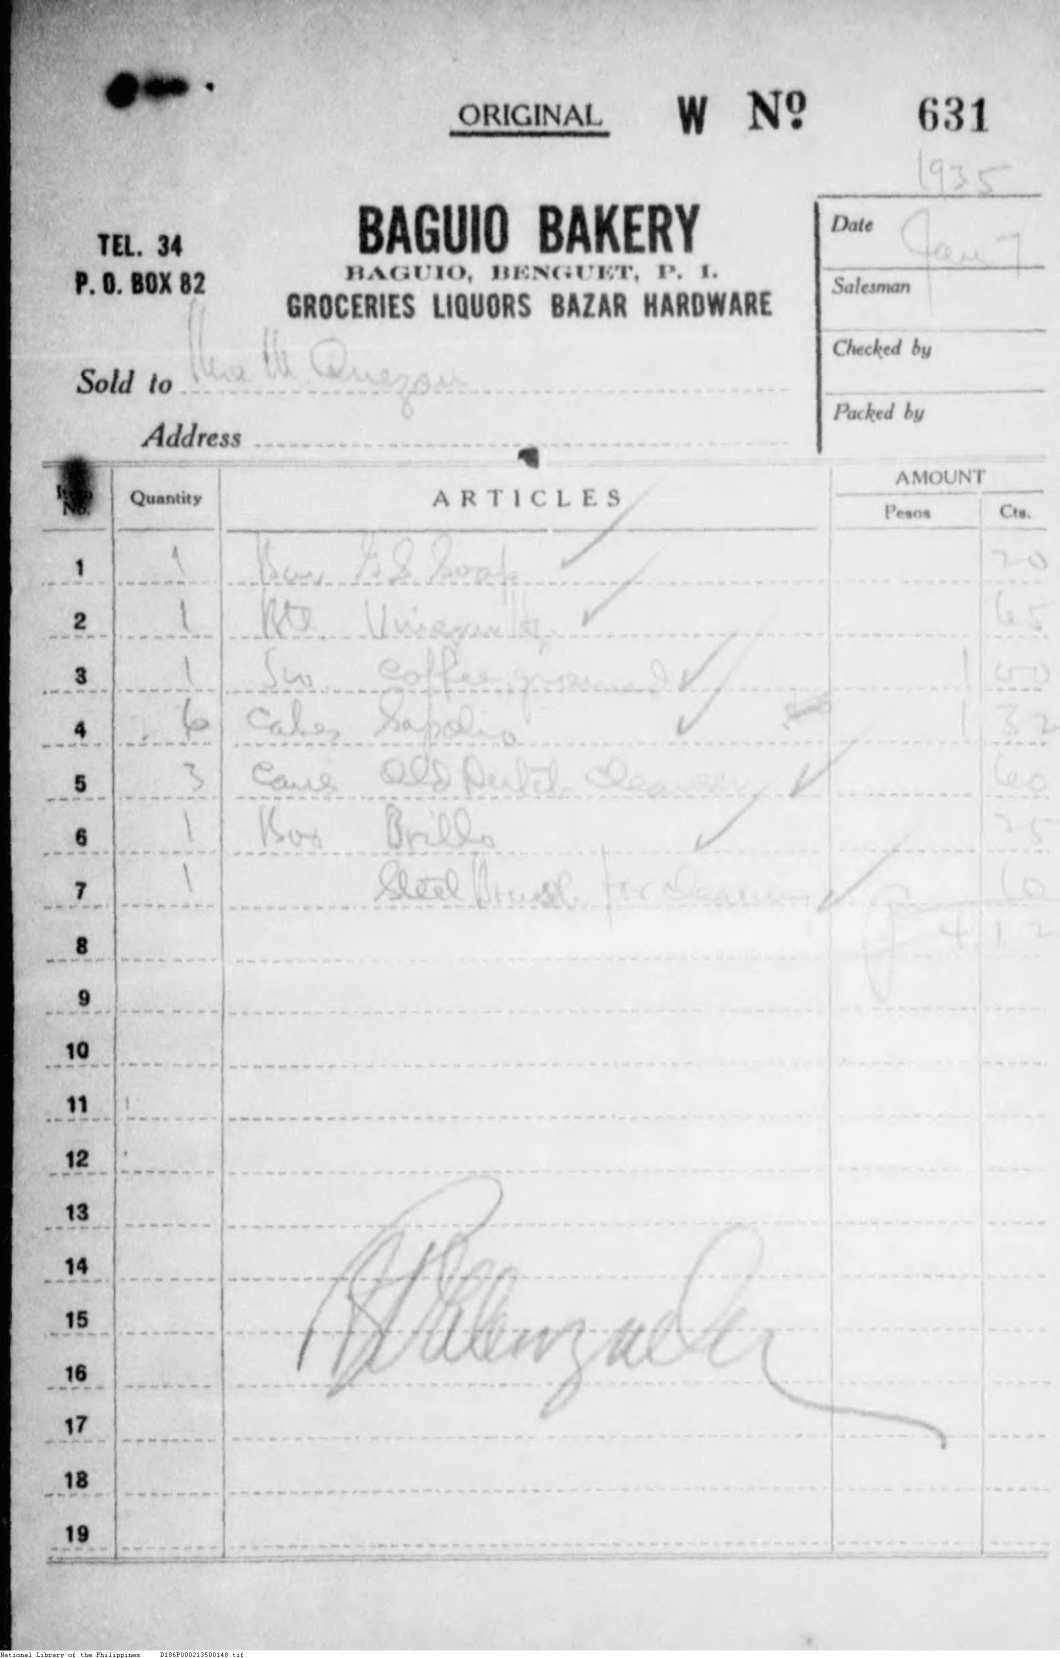 ORIGINAL W Nº 631
1935
TEL. 34
P. O. BOX 82
BAGUIO BAKERY
BAGUIO, BENGUET, P. I.
GROCERIES LIQUORS BAZAR HARDWARE
Date Jan 7
Salesman
Checked by
Packed by
Sold to M. Quezon
Address
Item No. Quantity ARTICLES AMOUNT
Pesos Cts.
1 1 Bar Soap 20
2 1 Btl. 65
3 1 coffee ground 1 00
4 6 Cakes Sapolio 1 32
5 3 Cans Old Dutch Cleanser 60
6 1 Box Brillo 25
7 1 Steel Brush for 10
8 4 12
9
10
11
12
13
14
15
16
17
18
19
National Library of the Philippines D186P000213500148.tif